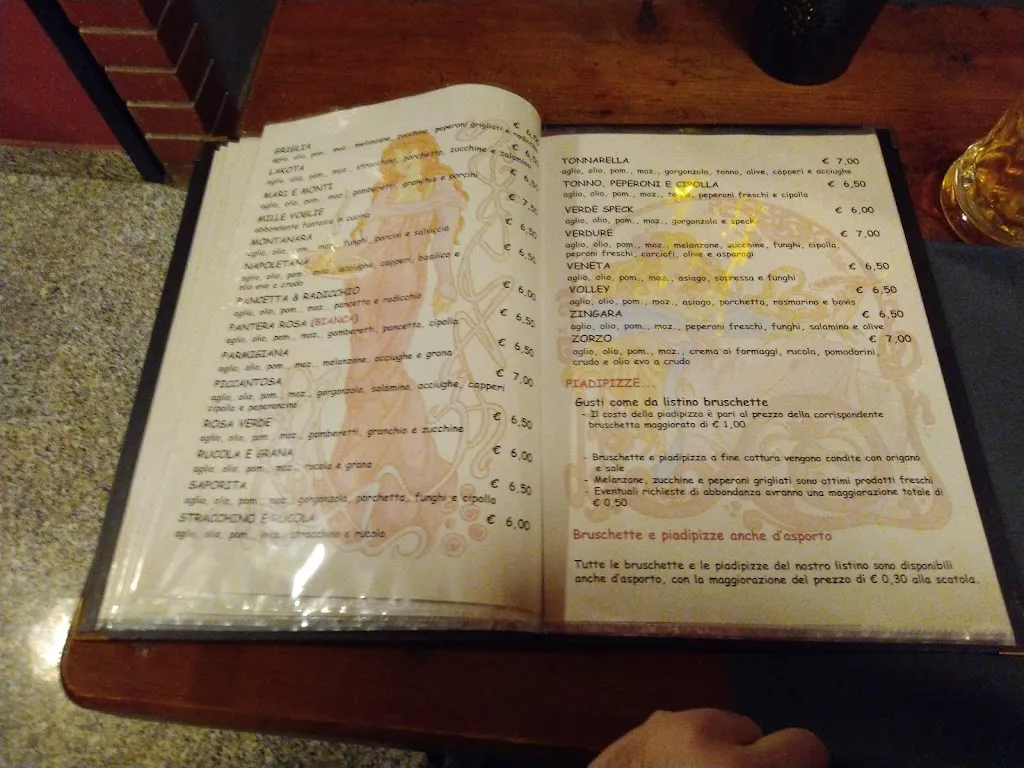 GRIGLIA € 6,50
aglio, olio, pom., moz., melanzane, zucchine, peperoni grigliati e radicchio
LAKOTA € 6,50
aglio, olio, pom., moz., stracchino, porchetta, zucchine e salamino
MARI E MONTI € 6,50
aglio, olio, pom., moz., gamberetti, granchio e porcini
MILLE VOGLIE € 7,50
abbondante fantasia di cucina
MONTANARA € 6,50
aglio, olio, pom., moz., funghi, porcini e salsiccia
NAPOLETANA € 6,50
aglio, olio, pom., moz., acciughe, capperi, basilico e
olio evo a crudo
PANCETTA & RADICCHIO € 6,00
aglio, olio, pom., moz., pancetta e radicchio
PANTERA ROSA (BIANCA) € 6,50
aglio, olio, pom., moz., gamberetti, pancetta, cipolla
PARMIGIANA € 6,50
aglio, olio, pom., moz., melanzane, acciughe e grana
PICCANTOSA € 7,00
aglio, olio, pom., moz., gorgonzola, salamino, acciughe, capperi
cipolla e peperoncino
ROSA VERDE € 6,50
aglio, olio, pom., moz., gamberetti, granchio e zucchine
RUCOLA E GRANA € 6,00
aglio, olio, pom., moz., rucola e grana
SAPORITA € 6,50
aglio, olio, pom., moz., gorgonzola, porchetta, funghi e cipolla
STRACCHINO E RUCOLA € 6,00
aglio, olio, pom., moz., stracchino e rucola
TONNARELLA € 7,00
aglio, olio, pom., moz., gorgonzola, tonno, olive, capperi e acciughe
TONNO, PEPERONI E CIPOLLA € 6,50
aglio, olio, pom., moz., tonno, peperoni freschi e cipolla
VERDE SPECK € 6,00
aglio, olio, pom., moz., gorgonzola e speck
VERDURE € 7,00
aglio, olio, pom., moz., melanzane, zucchine, funghi, cipolla,
peproni freschi, carciofi, olive e asparagi
VENETA € 6,50
aglio, olio, pom., moz., asiago, sopressa e funghi
VOLLEY € 6,50
aglio, olio, pom., moz., asiago, porchetta, rosmarino e bovis
ZINGARA € 6,50
aglio, olio, pom., moz., peperoni freschi, funghi, salamino e olive
ZORZO € 7,00
aglio, olio, pom., moz., crema ai formaggi, rucola, pomodorini,
crudo e olio evo a crudo
PIADIPIZZE...
Gusti come da listino bruschette
- Il costo della piadipizza è pari al prezzo della corrispondente
bruschetta maggiorato di € 1,00
- Bruschette e piadipizza a fine cottura vengono condite con origano
e sale
- Melanzane, zucchine e peperoni grigliati sono ottimi prodotti freschi
- Eventuali richieste di abbondanza avranno una maggiorazione totale di
€ 0,50
Bruschette e piadipizze anche d'asporto
Tutte le bruschette e le piadipizze del nostro listino sono disponibili
anche d'asporto, con la maggiorazione del prezzo di € 0,30 alla scatola.